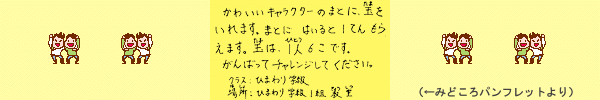 かわいいキャラクターのまとに、玉を
いれます。まとに はいると1てんもら
えます。玉は、1人6こです。
がんばってチャレンジしてください。
クラス：ひまわり学級
場所：ひまわり学級1組教室
（←みどころパンフレットより）